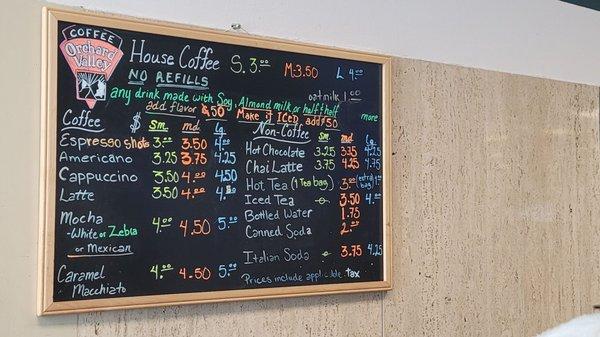 COFFEE
Orchard
Valley
House Coffee S. 3.00 M. 3.50 L 4.00
NO REFILLS
oatmilk 1.00
any drink made with Soy, Almond milk or half+half more
add flavor .50 Make it ICED add .50
Coffee $ Sm. md. Lg.
Espresso shots 3.00 3.50 4.00
Americano 3.25 3.75 4.25
Cappuccino 3.50 4.00 4.50
Latte 3.50 4.00
Mocha 4.00 4.50 5.00
-White or Zebra
or Mexican
Caramel 4.00 4.50 5.00
Macchiato
Non-Coffee Sm. md. Lg.
Hot Chocolate 3.25 3.75 4.25
Chai Latte 3.75 4.25 4.75
Hot Tea (1 Tea bag) 3.00 (extra bag)
Iced Tea 3.50 4.00
Bottled Water 1.75
Canned Soda 2.00
Italian Soda 3.75 4.25
Prices include applicable tax